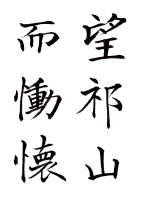 望祁山
而慟懷